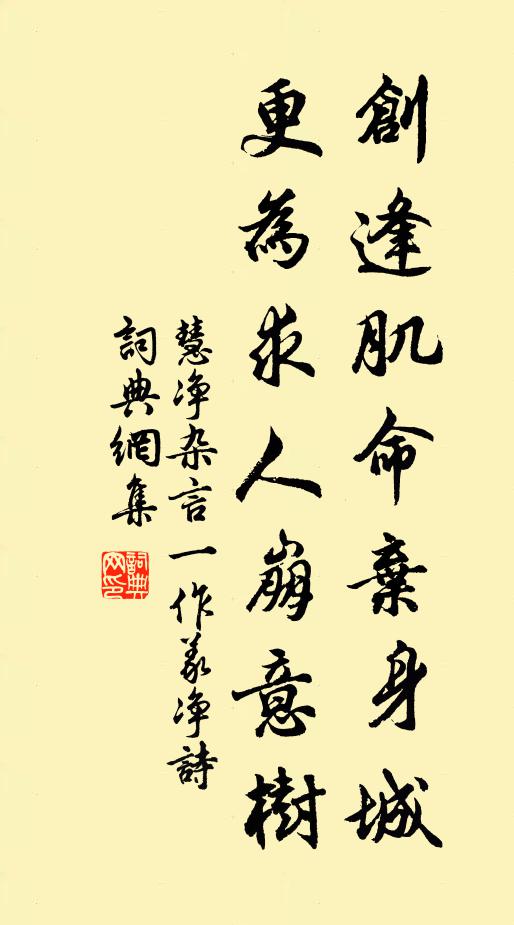 創逢肌命棄身城
更為求人崩意樹
慧净杂言一作義净詩
詞典網集
詞典
网印